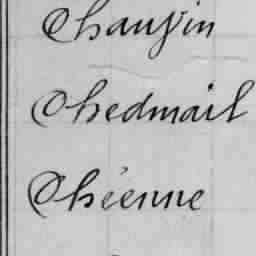 Chauvin
Chedmail
Chéenne